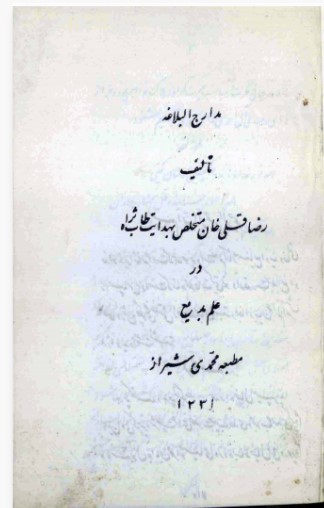 مدارج البلاغه
تألیف
رضا قلی خان متخلص بهدایت طاب ثراه
در
علم بدیع
مطبعه محمدی شیراز
۱۲۳۱